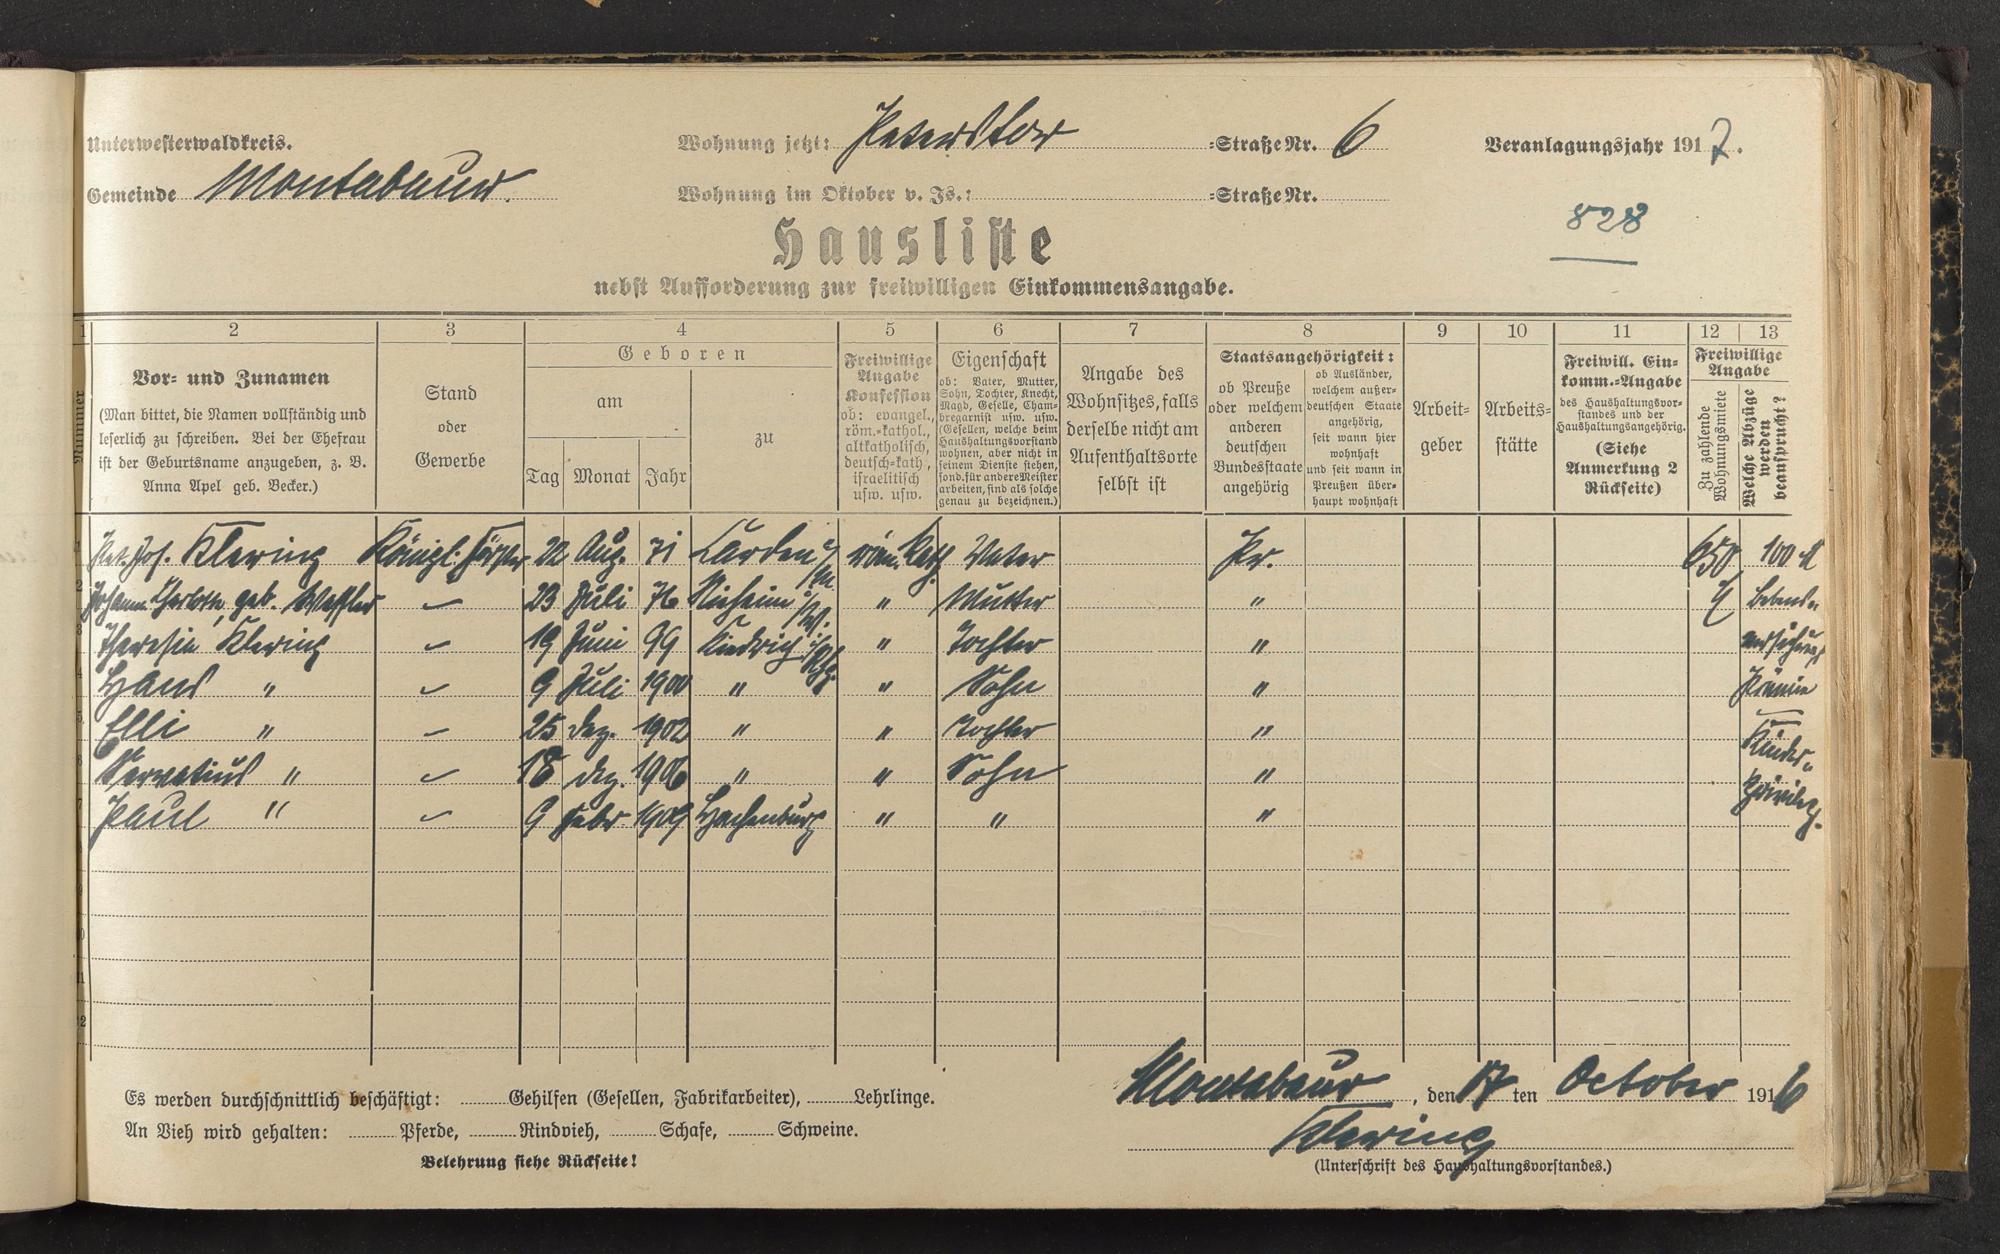 Unterwesterwaldkreis.
Wohnung jetzt: Peterstor =Straße Nr. 6
Veranlagungsjahr 1917.
Gemeinde Montabaur.
Wohnung im Oktober v. Js.: =Straße Nr.
828
Hausliste
nebst Aufforderung zur freiwilligen Einkommensangabe.
1 2 3 4 5 6 7 8 9 10 11 12 13
Nummer
Vor- und Zunamen
(Man bittet, die Namen vollständig und
leserlich zu schreiben. Bei der Ehefrau
ist der Geburtsname anzugeben, z. B.
Anna Apel geb. Becker.)
Stand
oder
Gewerbe
Geboren
am
Tag Monat Jahr
zu
Freiwillige
Angabe
Konfession
ob: evangel.,
röm.-kathol.,
altkatholisch,
deutsch-kath.,
israelitisch
usw. usw.
Eigenschaft
ob: Vater, Mutter,
Sohn, Tochter, Knecht,
Magd, Geselle, Cham-
bregarnist usw. usw.
(Gesellen, welche beim
Haushaltungsvorstand
wohnen, aber nicht in
seinem Dienste stehen,
sond. für andere Meister
arbeiten, sind als solche
genau zu bezeichnen.)
Angabe des
Wohnsitzes, falls
derselbe nicht am
Aufenthaltsorte
selbst ist
Staatsangehörigkeit:
ob Preuße
oder welchem
anderen
deutschen
Bundesstaate
angehörig
ob Ausländer,
welchem außer-
deutschen Staate
angehörig,
seit wann hier
wohnhaft
und seit wann in
Preußen über-
haupt wohnhaft
Arbeit-
geber
Arbeits-
stätte
Freiwill. Ein-
komm.-Angabe
des Haushaltungsvor-
standes und der
Haushaltungsangehörig.
(Siehe
Anmerkung 2
Rückseite)
Freiwillige
Angabe
Zu zahlende
Wohnungsmiete
Welche Abzüge
werden
beansprucht?
1 Pet. Jos. Klering Königl. Förster 22 Aug. 71 Carden a/M röm. Kath. Vater Pr. 650 M 100 M
2 Johann. Charlotte, geb. 23 Juli 76 Nieheim i/W. " Mutter " Lebens-
3 Theresia Klering 19 Juni 99 Kiedrich i/Rhg. " Tochter " versichergs
4 Hans " 9 Juli 1900 " " Sohn " Prämie
5 Elli " 25 Dez. 1902 " " Tochter " Kinder-
6 Servatius " 18 Dez. 1906 " " Sohn "
7 Paul " 9 Febr. 1909 Hachenburg " " " Privileg.
12
Es werden durchschnittlich beschäftigt: Gehilfen (Gesellen, Fabrikarbeiter), Lehrlinge.
Montabaur, den 17 ten October 1916
An Vieh wird gehalten: Pferde, Rindvieh, Schafe, Schweine.
Klering
Belehrung siehe Rückseite!
(Unterschrift des Haushaltungsvorstandes.)